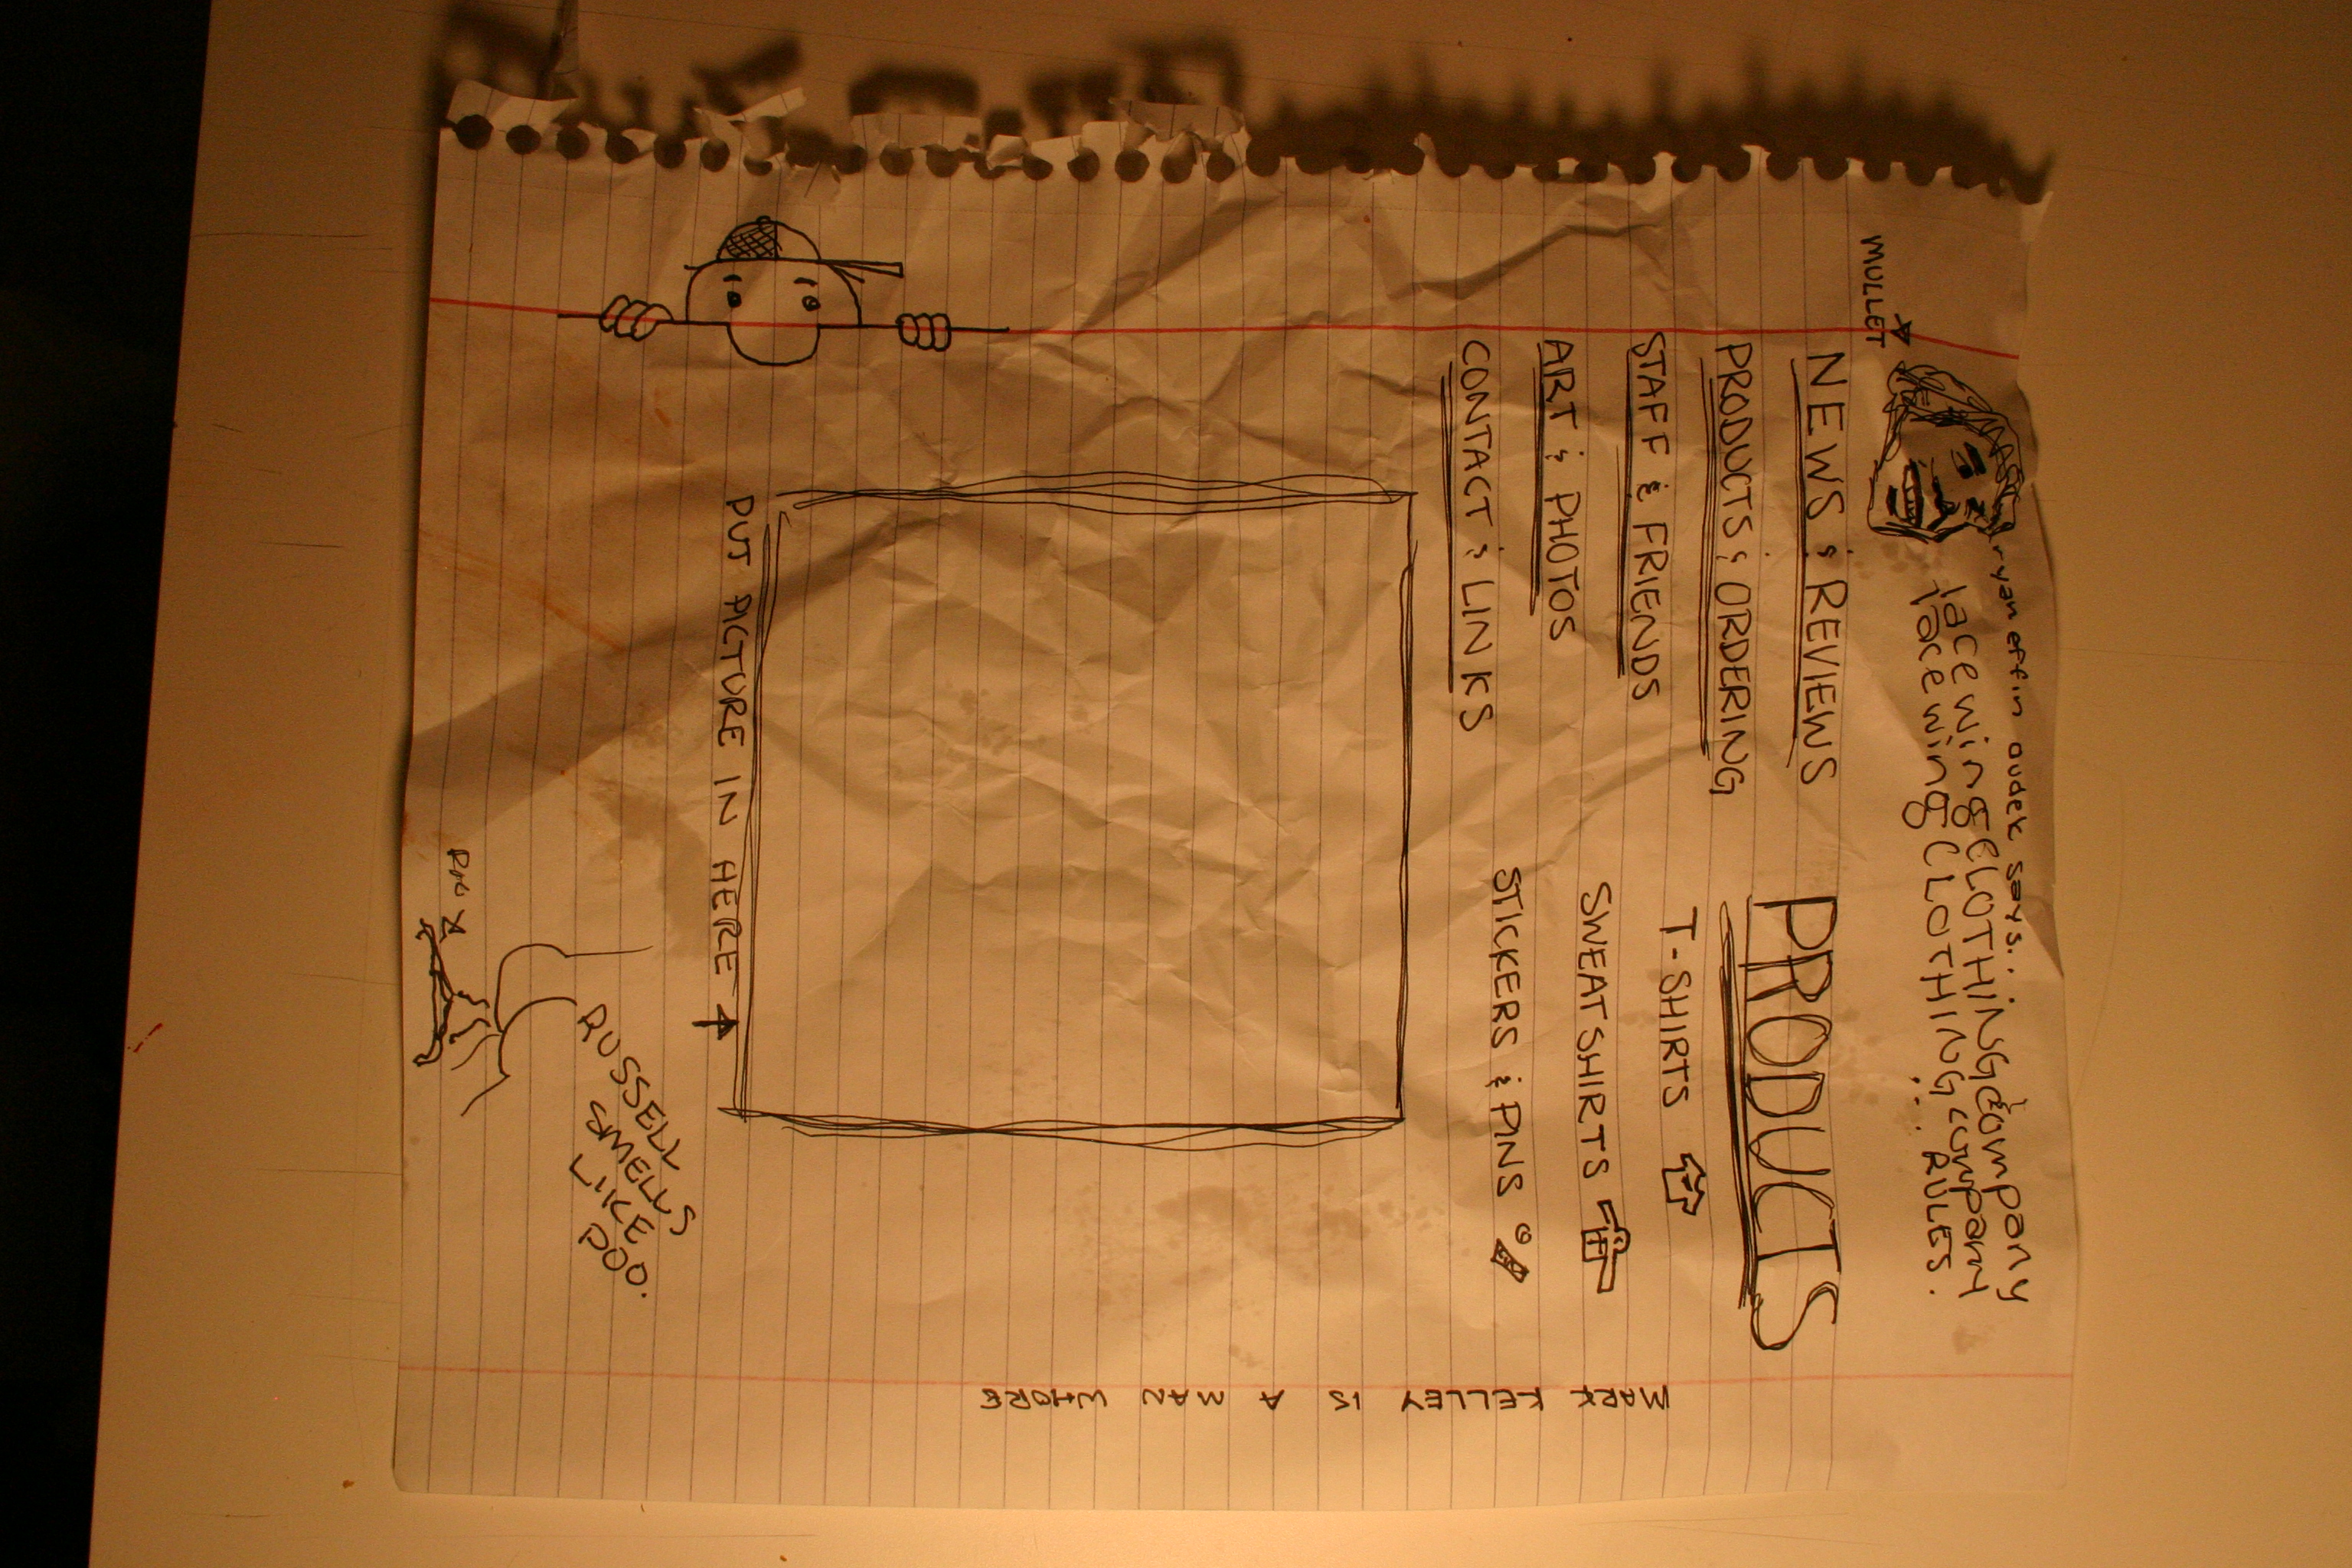 MULLET
ryan effin oudek says..
lacewingCLOTHiNGcompany
lacewingCLOTHINGcompany
... RULES.
NEWS & REVIEWS
PRODUCTS & ORDERING
STAFF & FRIENDS
ART & PHOTOS
CONTACT & LINKS
PRODUCTS
T-SHIRTS
SWEATSHIRTS
STICKERS & PINS
PUT PICTURE IN HERE
RUSSELL
SMELLS
LIKE
POO.
MARK KELLEY IS A MAN WHORE